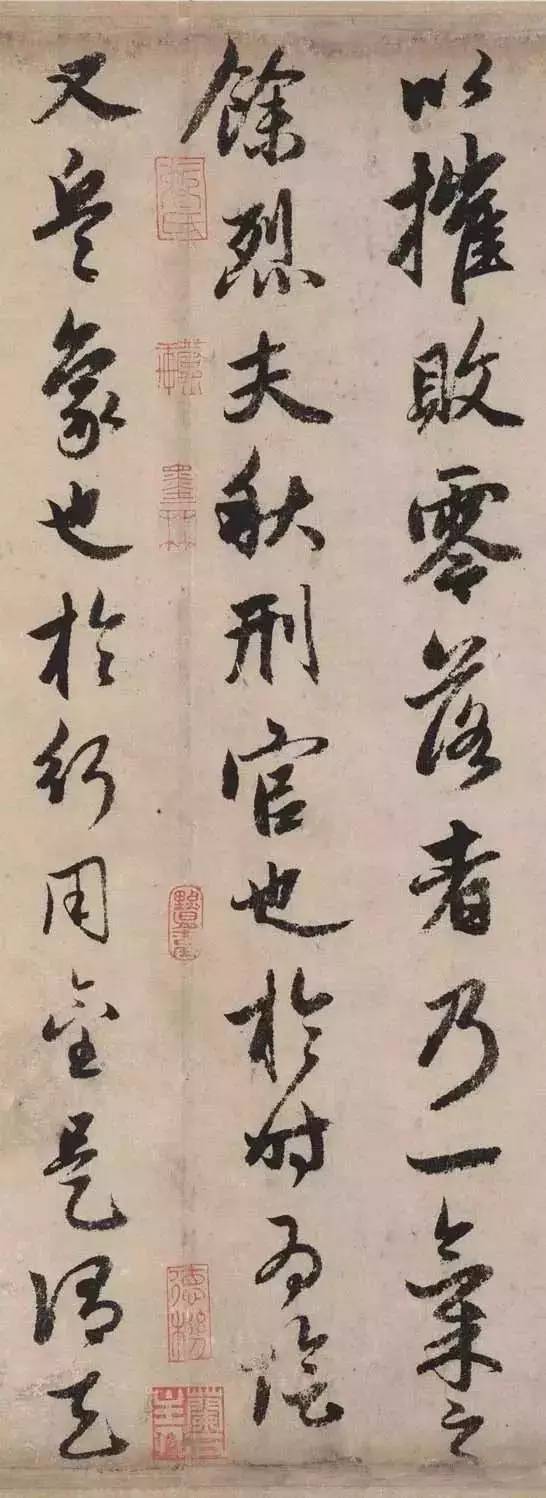 以摧敗零落者乃一氣之
餘烈夫秋刑官也於时為陰
又兵象也於行用金是謂天